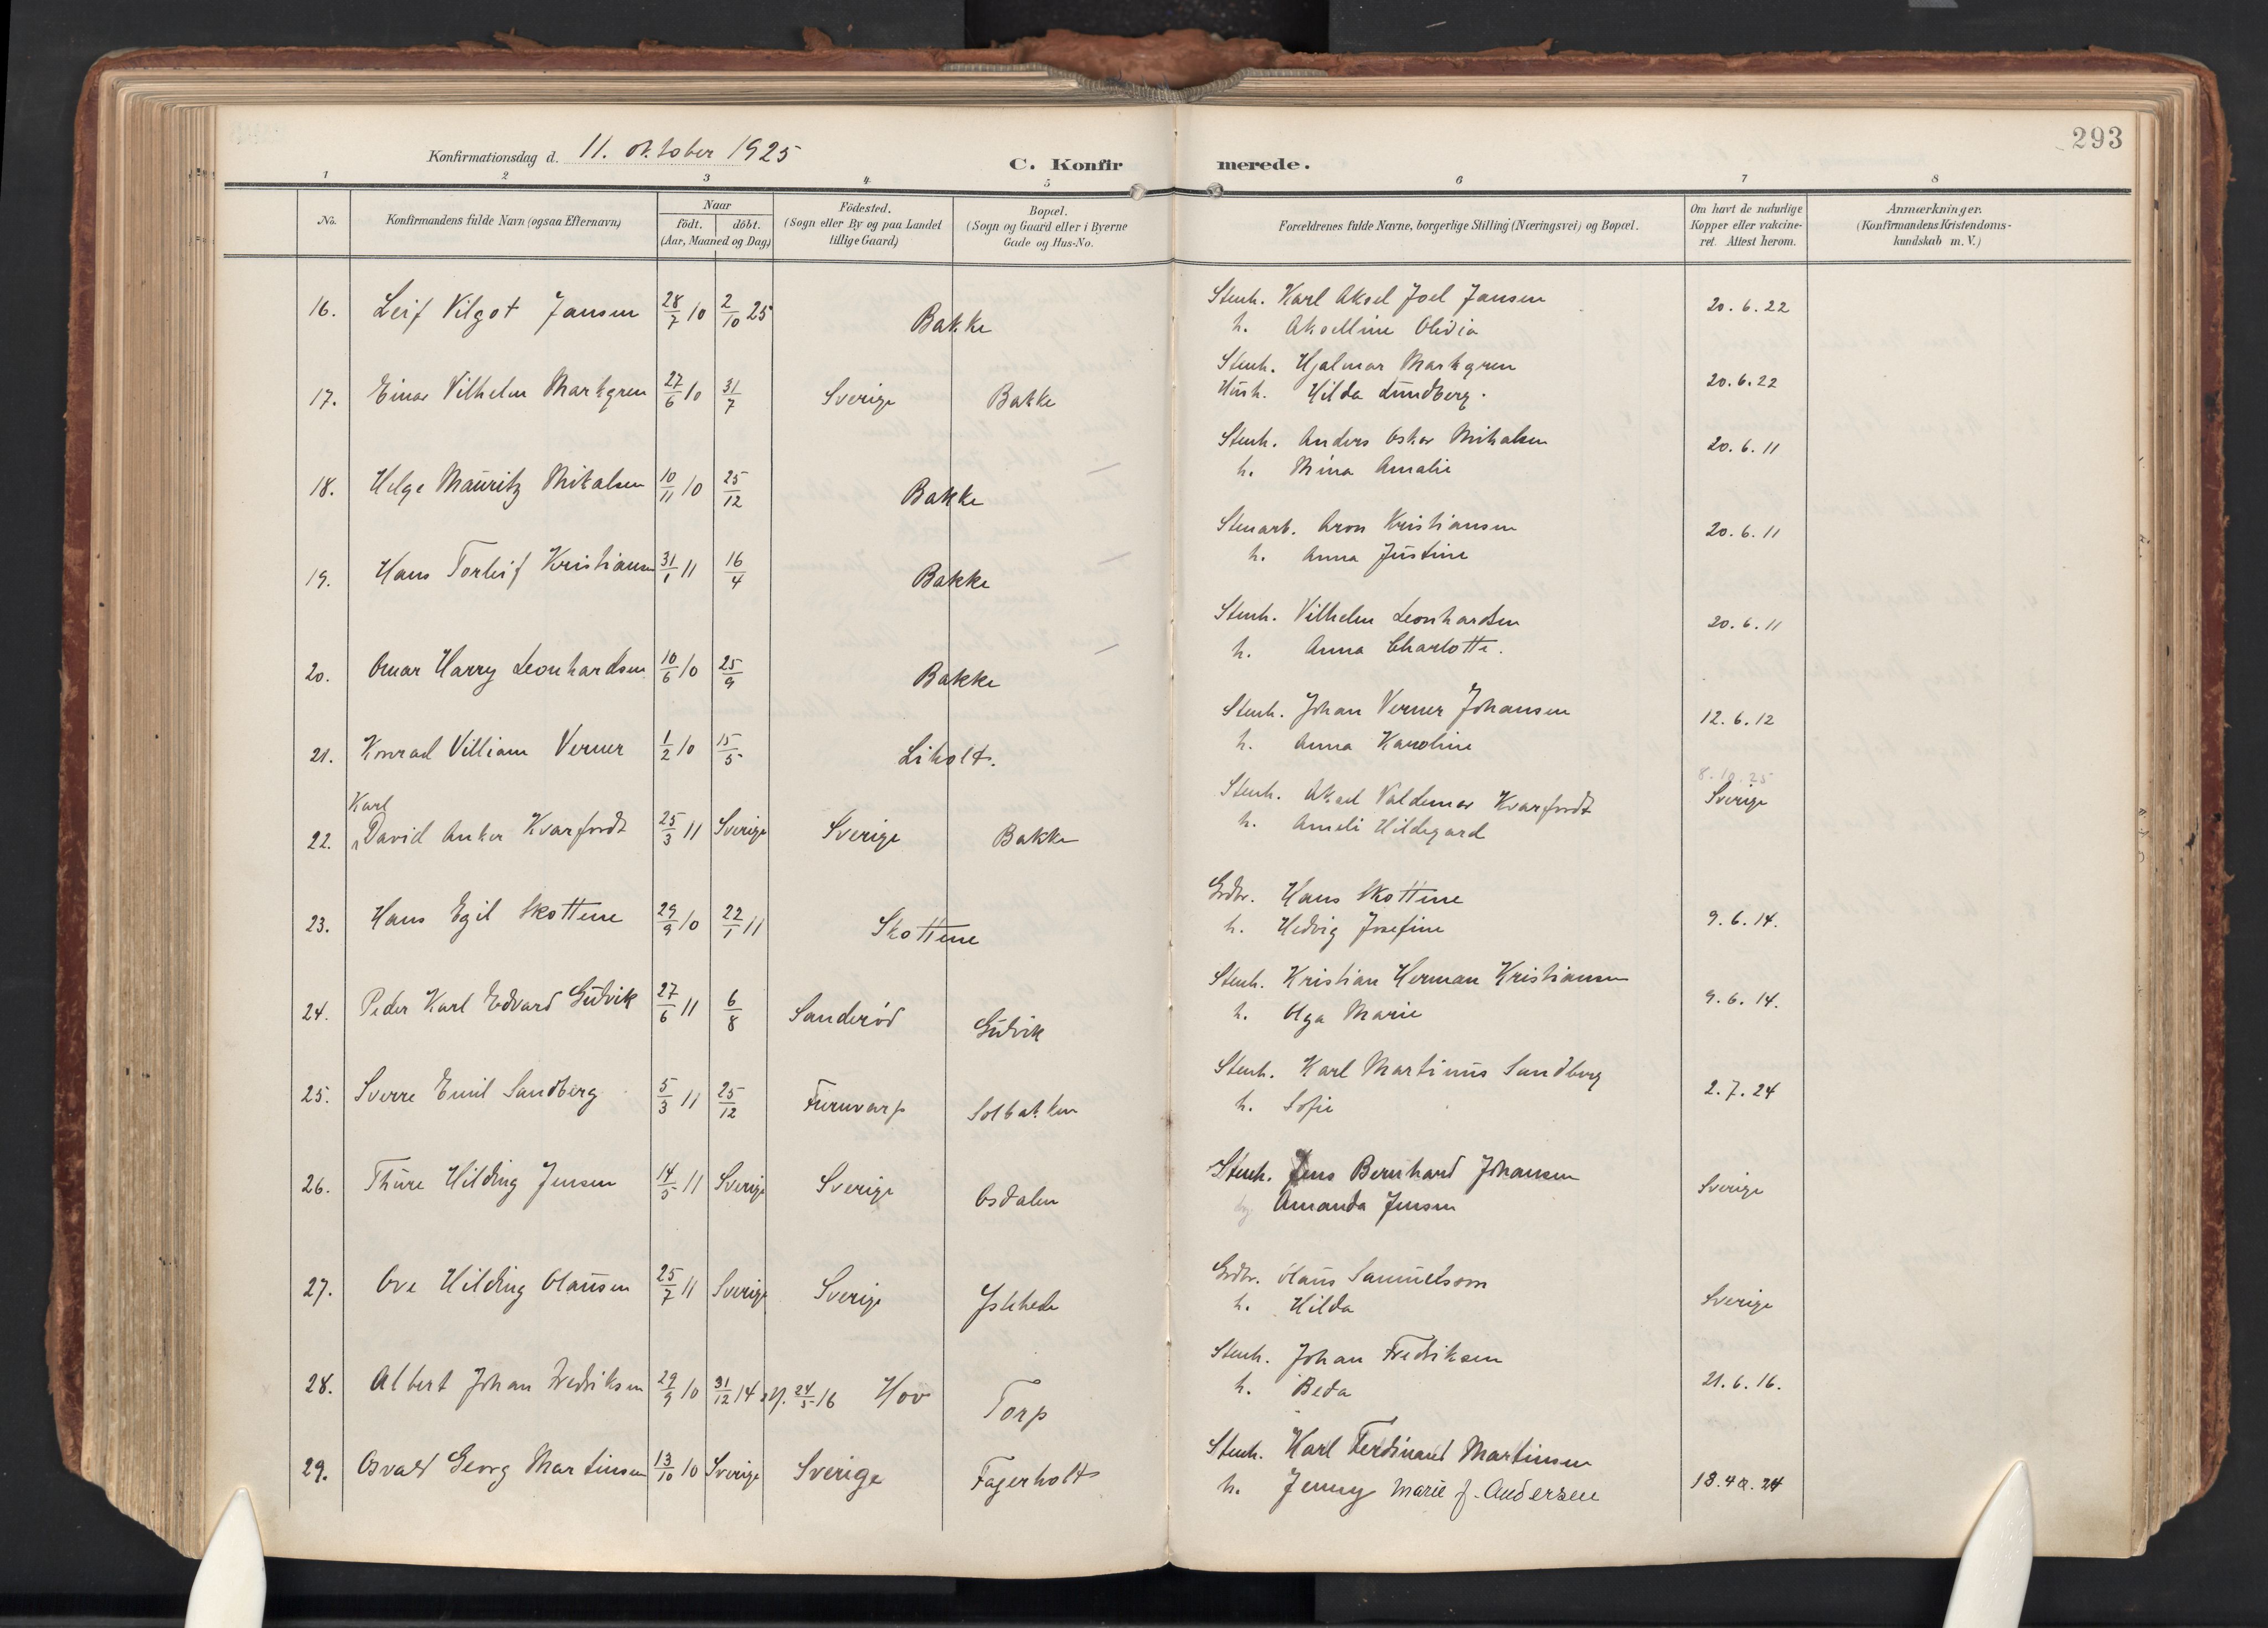 293
Konfirmationsdag d. 11. oktober 1925
C. Konfirmerede.
1 2 3 4 5 6 7 8
No.
Konfirmandens fulde Navn (ogsaa Efternavn)
Naar
födt. döbt.
(Aar, Maaned og Dag)
Födested.
(Sogn eller By og paa Landet
tillige Gaard)
Bopæl.
(Sogn og Gaard eller i Byerne
Gade og Hus-No.
Forældrenes fulde Navne, borgerlige Stilling (Næringsvei) og Bopæl.
Om havt de naturlige
Kopper eller vakcine-
ret. Attest herom.
Anmærkninger.
(Konfirmandens Kristendoms-
kundskab m. V.)
16. Leif Vilgot Jansen 28/7 10 2/10 25 Bakke
Stenh. Karl Aksel Joel Jansen
h. Akselline Olivia
20.6.22
17. Einar Vilhelm Markgren 27/6 10 31/7 Sverige Bakke
Stenh. Hjalmar Markgren
Hush. Hilda Lundberg.
20.6.22
18. Helge Mauritz Mikalsen 10/11 10 25/12 Bakke
Stenh. Anders Oskar Mikalsen
h. Mina Amalie
20.6.11
19. Hans Torleif Kristiansen 31/1 11 16/4 Bakke
Stenarb. Aron Kristiansen
h. Anna Justine
20.6.11
20. Omar Harry Leonhardsen 10/6 10 25/9 Bakke
Stenh. Vilhelm Leonhardsen
h. Anna Charlotte.
20.6.11
21. Konrad Villiam Verner 1/2 10 15/5 Liholt.
Stenh. Johan Verner Johansen
h. Anna Karoline
12.6.12
Karl
22. David Anker Kvarfordt 25/3 11 Sverige Sverige Bakke
Stenh. Aksel Valdemar Kvarfordt
h. Ameli Hildegard
8.10.25
Sverige
23. Hans Egil Skottene 29/9 10 22/1 11 Skottene
Grdbr. Hans Skottene
h. Hedvig Josefine
9.6.14.
24. Peder Karl Edvard Gudvik 27/6 11 6/8 Sanderød Gudvik
Stenh. Kristian Herman Kristiansen
h. Olga Marie
9.6.14.
25. Sverre Emil Sandberg 5/3 11 25/12 Furuvarp Solbakken
Stenh. Karl Martinus Sandberg
h. Sofie
2.7.24
26. Thure Hilding Jensen 14/5 11 Sverige Sverige Osdalen
Stenh. Jens Bernhard Johansen
Amanda Jensen
Sverige
27. Ove Hilding Olausen 25/7 11 Sverige Sverige Isthede
Grdbr. Olaus Samuelsson
h. Hilda
Sverige
28. Albert Johan Fredriksen 29/9 10 31/12 14 24/5 16 Hov Torp
Stenh. Johan Fredriksen
h. Beda
21.6.16.
29. Osvald Georg Martinsen 13/10 10 Sverige Sverige Fagerholt
Stenh. Karl Ferdinand Martinsen
h. Jenny Marie f. Andersen